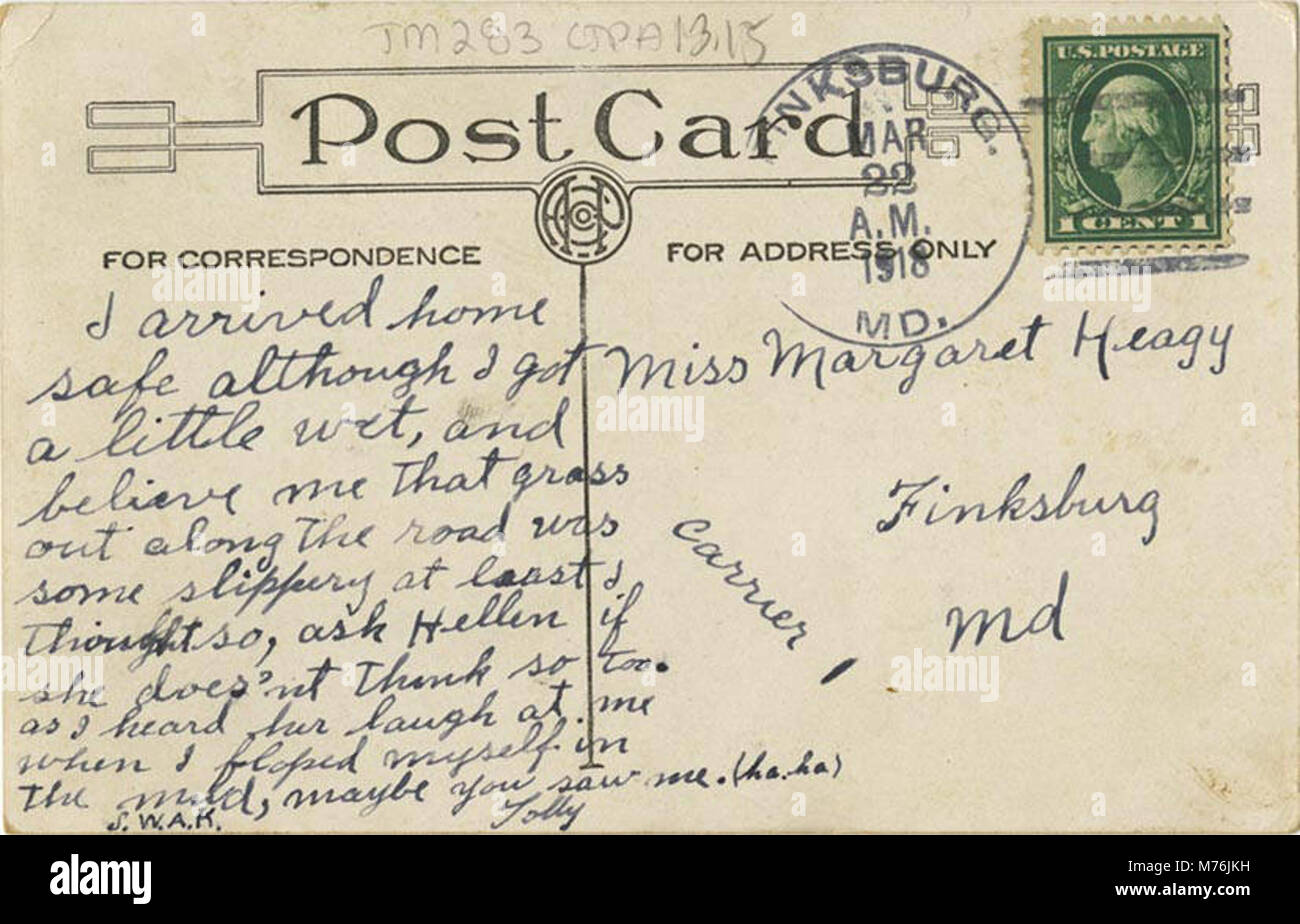 JM283 GTPA 13.15
Post Card
FINKSBURG.
MAR
22
A.M.
1918
MD.
U.S. POSTAGE
1 CENT 1
FOR CORRESPONDENCE
FOR ADDRESS ONLY
I arrived home
safe although I got
a little wet, and
believe me that grass
out along the road was
some slippery at least I
thought so, ask Hellen if
she does'nt think so too.
as I heard her laugh at me
when I floped myself in
the mud, maybe you saw me. (ha.ha)
S.W.A.K.
Miss Margaret Heagy
Finksburg
Md
Carrier,
alamy
alamy
alamy
alamy
Image ID: M76JKH
www.alamy.com